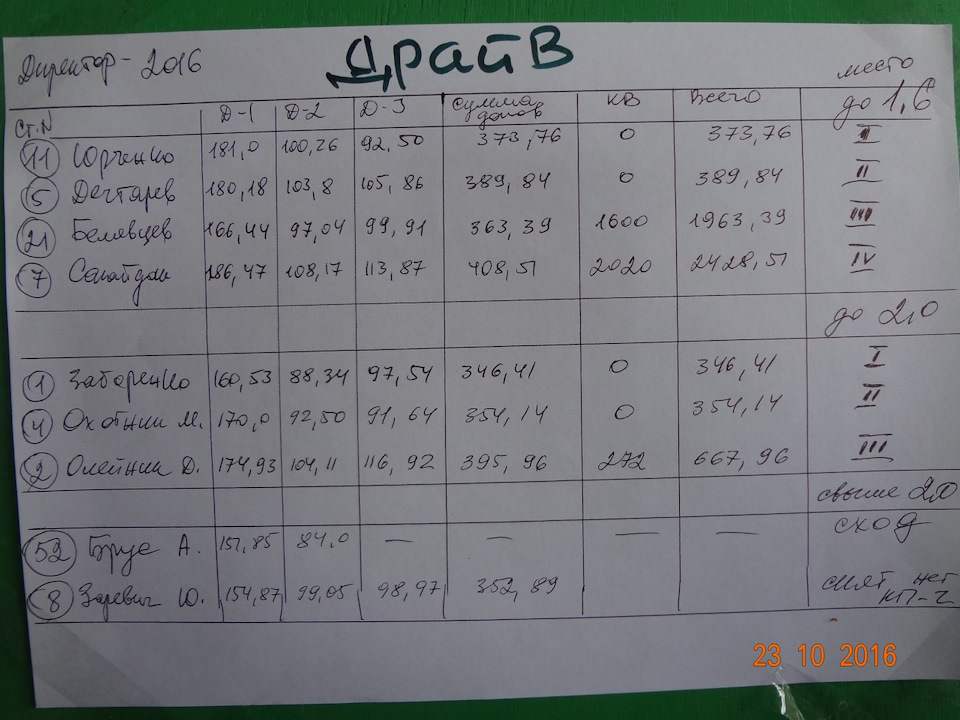 Директор - 2016 ДрайВ место
Ст.N Д-1 Д-2 Д-3 Сумма допов КВ Всего до 1,6
11 Юрченко 181,0 100,26 92,50 373,76 0 373,76 I
5 Дегтярев 180,18 103,8 105,86 389,84 0 389,84 II
21 Белявцев 166,44 97,04 99,91 363,39 1600 1963,39 III
7 186,47 108,17 113,87 408,51 2020 2428,51 IV
до 2,0
1 Забаренко 160,53 88,34 97,54 346,41 0 346,41 I
4 Охотник М. 170,0 92,50 91,64 354,14 0 354,14 II
2 Олейник Д. 174,93 104,11 116,92 395,96 272 667,96 III
свыше 2,0
52 Брус А. 151,85 84,0 — — — — сход
8 Заревич Ю. 154,87 99,05 98,97 352,89 снят нет КП-2
23 10 2016